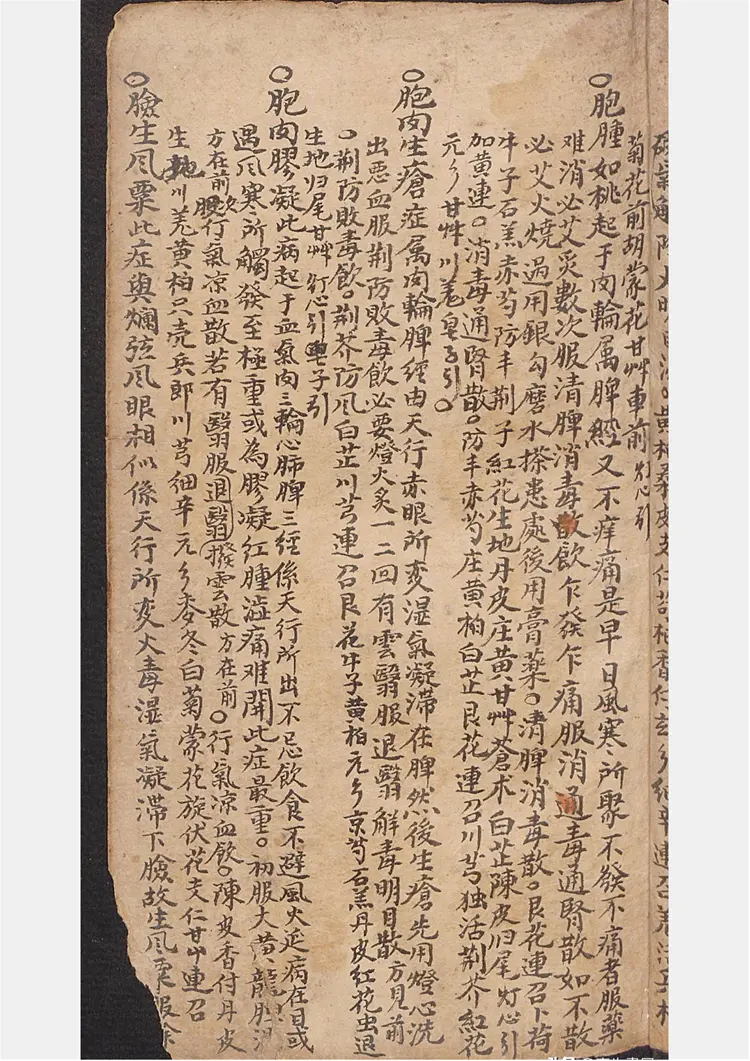 菊花前胡蒙花甘艸車前灯心引
○胞腫如桃起于肉輪属脾經又不痒痛是早日風寒所聚不發不痛者服藥
难消必艾炙數次服清脾消毒散飲乍發乍痛服消通毒通腎散如不散
必艾火燒過用銀勾磨水搽患處後用膏藥。清脾消毒散。艮花連召卜荷
牛子石羔赤芍防丰荆子紅花生地丹皮庄黄甘艸蒼术白芷陳皮归尾灯心引
加黄連。消毒通腎散。防丰赤芍庄黄柏白芷艮花連召川芎独活荆芥紅花
元乡甘艸川羌皂子引。
○胞肉生瘡症属肉輪脾經由天行赤眼所変湿氣凝滞在脾然後生瘡先用燈心洗
出悪血服荆防敗毒飲必要燈火炙一二回有雲翳服退翳解毒明目散方見前
○荆防敗毒飲。荆芥防风白芷川芎連召艮花牛子黄柏元乡京芍石羔丹皮紅花虫退
生地归尾甘艸灯心引車子引
○胞肉膠凝此病起于血氣肉三輪心肺脾三經係天行所出不忌飲食不避風火延病在目或
遇风寒所觸發至極重或為膠凝紅腫澁痛难開此症最重。初服大黄龍胆
方在前次服行氣凉血散若有翳服退翳撥雲散方在前。行氣凉血飲。陳皮香付丹皮
生地川羌黄柏只壳兵郎川芎細辛元乡麦冬白菊蒙花旋伏花支仁甘艸連召
○臉生风粟此症與爛弦风眼相似係天行所変火毒湿氣凝滞下臉故生风粟服